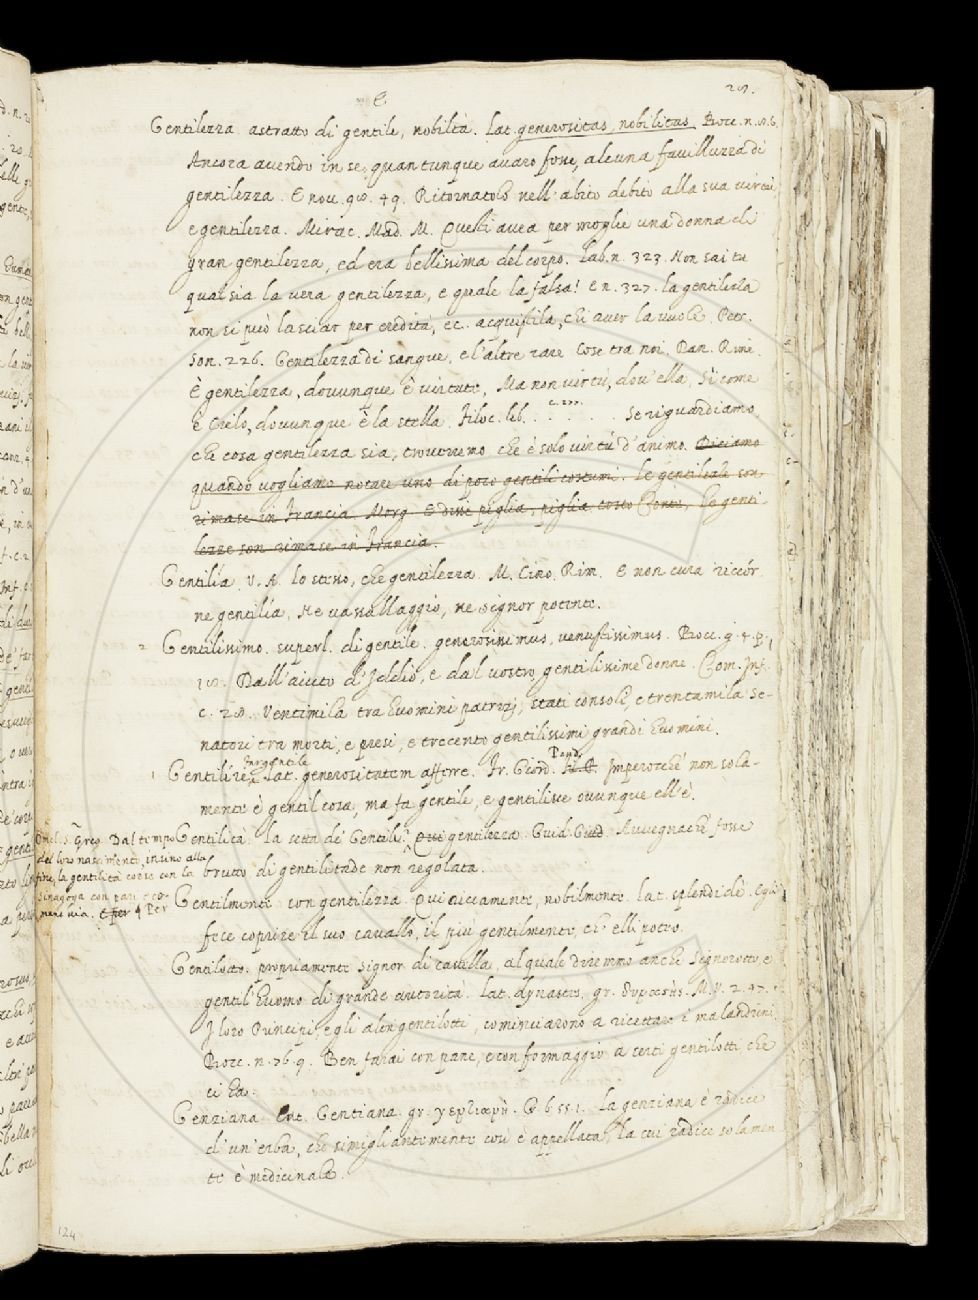 E
Gentilezza astratto di gentile, nobiltà. Lat. generositas, nobilitas. Bocc. n.
Ancora avendo in se, quantunque avaro fosse, alcuna favilluzza di
gentilezza. E nov. 49. Ritornatolo nell' abito debito alla sua virtù,
e gentilezza. Mirac. Mad. M. Questi avea per moglie una donna di
gran gentilezza, ed era bellissima del corpo. Lab. n. 323. Non sai tu
qual sia la vera gentilezza, e quale la falsa! e n. 327. la gentilezza
non si può lasciar per eredità, ec. acquistila, chi aver la vuole. Petr.
Son. 226. Gentilezza di sangue, e l'altre care cose tra noi. Dan. Rim.
È gentilezza, dovunque è virtute, Ma non virtù, dov'ella, Sì come
è Cielo, dovunque è la stella. Filoc. lib. . . . . . Se riguardiamo,
che cosa gentilezza sia, troveremo che è solo virtù d'animo. Diciamo
quando vogliamo notare uno di poco gentili costumi. Le gentilezze son
rimase in Francia. Morg. E dove piglia, piglia, Le genti
lezze son rimase in Francia.
Gentilía V. A. lo stesso, che gentilezza. M. Cino. Rim. E non cura riccór
ne gentilía, Ne vassallaggio, ne signor potente.
2 Gentilissimo. superl. di gentile. generosissimus, venustissimus. Bocc. g. 4. p.
Dall'aiuto d'Iddio, e dal vostro gentilissime donne. Com. Inf.
c. 28. Ventimila tra huomini patrizj, stati consoli, e trentamila se-
natori tra morti, e presi, e trecento gentilissimi grandi huomini.
far gentile Pred.
1 Gentilire. Lat. generositatem afferre. Fr. Giord. Imperocchè non sola-
mente è gentil cosa, ma fa gentile, e gentilisce ovunque ell'è.
Omel. S. Greg. Dal tempo
del loro nascimento insino alla
fine, la gentilità corse con la
Sinagoga con pari e co-
mune via. Per
Gentilità la setta de' Gentili. Qui gentilezza. Guid. Guid. Avvegnachè fosse
brutto di gentilitade non regolata.
Gentilmente con gentilezza. Qui riccamente, nobilmente. lat. splendidè. Egli
fece coprire il suo cavallo, il più gentilmente, ch' elli poteo.
Gentilotto. propriamente signor di castella, al quale diremmo anche Signorotto, e
gentil'huomo di grande autorità. Lat. dynastes, gr. δυνάστης. M. V. 2. 47.
I loro Principi, e gli altri gentilotti, cominciarono a ricettare i malandrini,
Bocc. n. 76. 9. Ben farai con pane, e con formaggio a certi gentilotti che
ci ha.
Genziana Erb. Gentiana. gr. γεντιανὴ. La genziana è radice
di un'erba, che simigliantemente così è appellata, la cui radice solamen
te è medicinale.
124